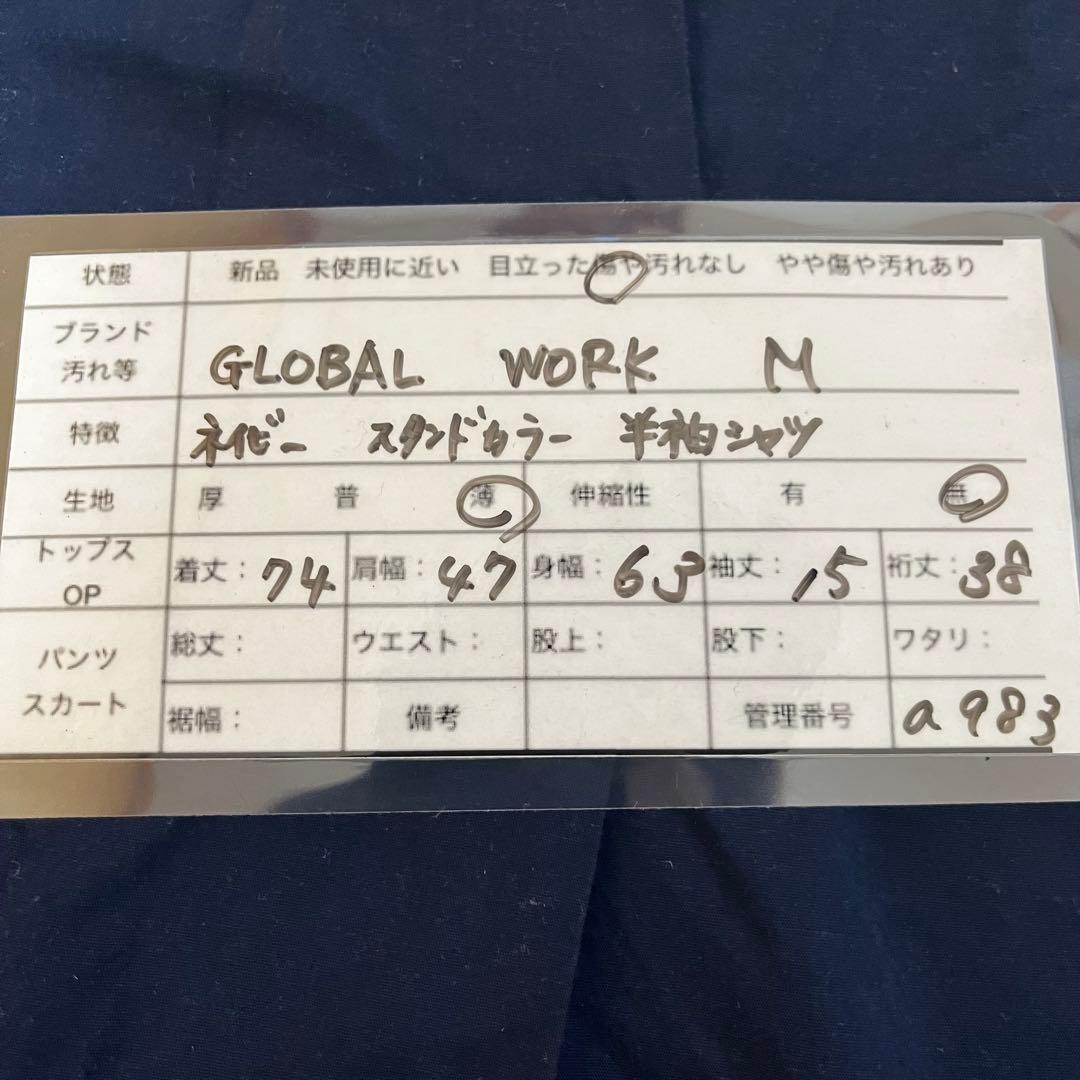 状態 新品 未使用に近い 目立った傷や汚れなし やや傷や汚れあり
ブランド
汚れ等 GLOBAL WORK M
特徴 ネイビー スタンドカラー 半袖シャツ
生地 厚 普 薄 伸縮性 有 無
トップス
OP 着丈：74 肩幅：47 身幅：63 袖丈：15 裄丈：38
パンツ
スカート
総丈： ウエスト： 股上： 股下： ワタリ：
裾幅： 備考 管理番号 a983